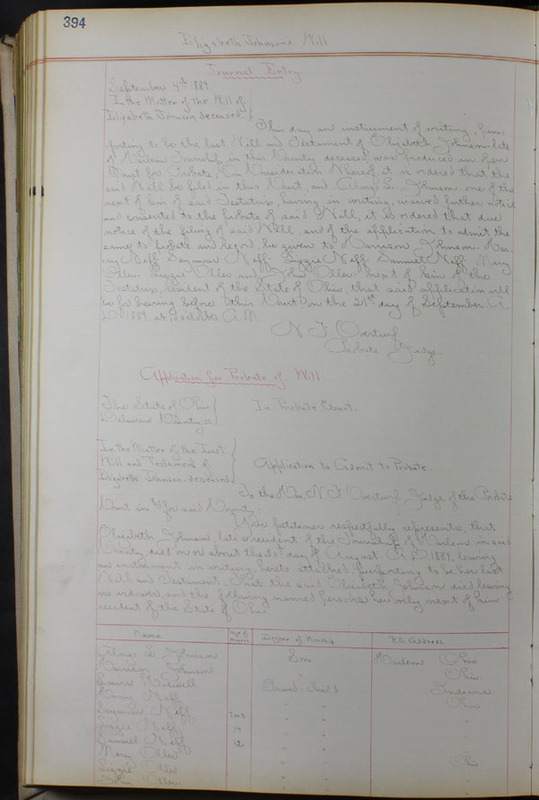 394
Elizabeth Johnson's Will
Journal Entry
September 4th 1889
In the Matter of the Will of
Elizabeth Johnson deceased
This day an instrument of writing, pur-
porting to be the last Will and Testament of Elizabeth Johnson late
of Harlem Township in this County deceased was produced in open
Court for Probate. On Consideration Whereof it is ordered that the
said Will be filed in this Court, and L. Johnson one of the
next of kin of said Testatrix, having in writing, waived further notice
and consented to the probate of said Will, it is ordered that due
notice of the filing of said Will, and of the application to admit the
same to probate and record, be given to Harrison Johnson,
Neff, Seymour Neff, Neff, Samuel Neff, Mary
and John next of kin of the
Testatrix, resident of the State of Ohio, that said application will
be for hearing before this Court on the 21st day of September A.
D. 1889, at 10 o'clock A.M.
N. F. Overturf
Probate Judge.
Application for Probate of Will
The State of Ohio
Delaware County ss
In Probate Court.
In the Matter of the Last
Will and Testament of
Elizabeth Johnson, deceased
Application to Admit to Probate.
To the Hon N F Overturf Judge of the Probate
Court in & for said County:
Your petitioner respectfully represents, that
Elizabeth Johnson, late a resident of the Township of Harlem in said
County, died on or about the day of August A. D. 1889, leaving
an instrument in writing, hereto attached, purporting to be her last
Will and Testament. That the said Elizabeth Johnson died leaving
no widower, and the following named persons her only next of kin
resident of the State of Ohio
Name Degree of Kinship P.O. Address
L. Johnson Son Harlem Ohio
Harrison Johnson " Ohio
Laura Grand-child Indiana
Neff " Ohio
Seymour Neff " "
Neff 14 " "
Samuel Neff 12 " "
Mary " Ohio
" "
John " "